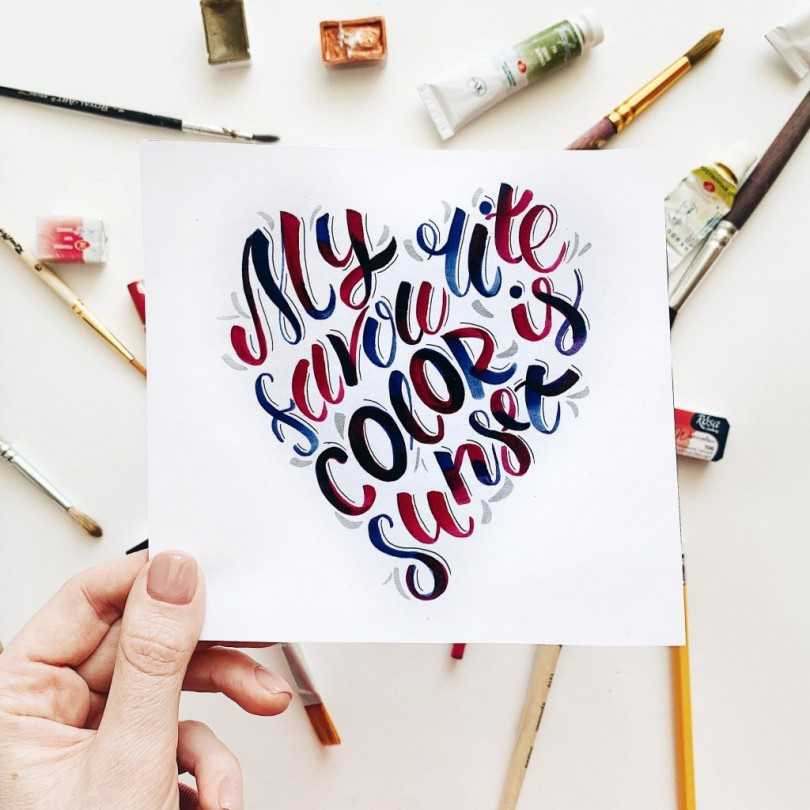 My
favourite
COLOR is
sunset
Rosa